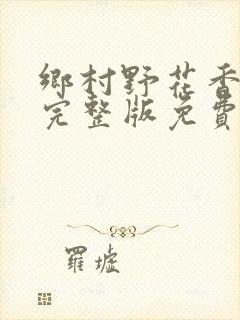 鄉村野花香
完整版免費
羅墟